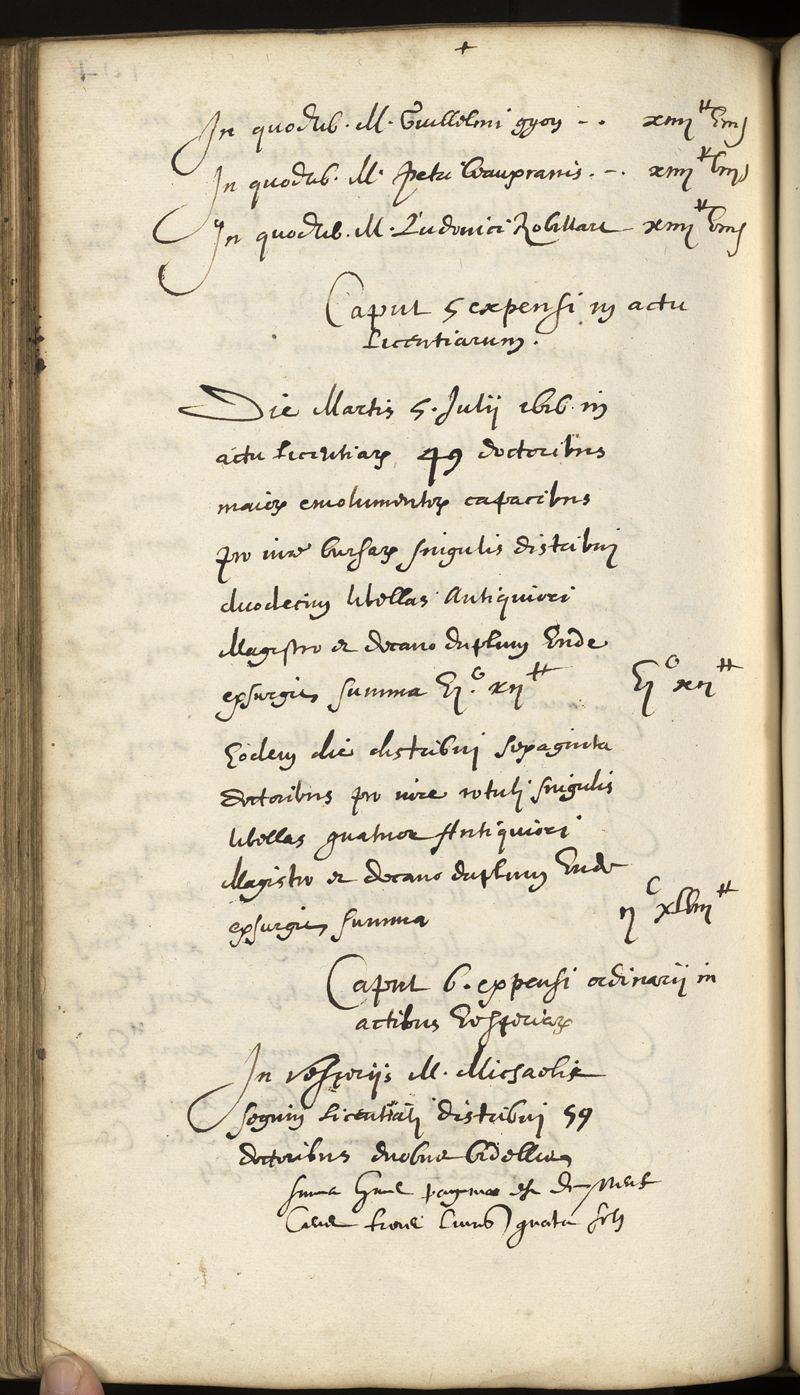 +
In quodlib. M. Guillelmi gyon - . xiiii ⁺⁺ viii ſ
In quodlib. M. Petri beaupranis . - . xiiii ⁺⁺ viii ſ
In quodlib. M. Ludovici Robillart - xiiii ⁺⁺ viii ſ
Caput 5 expensi in actu
licentiarum .
Die Martis 5. Julii 1616 in
actu licentiaꝝ 49 doctoribus
maioꝝ emolumentoꝝ capacibus
pro iure bursaꝝ singulis distribui
duodecim libellas Antiquiori
Magistro et decano duplum Unde
exsurgit summa vi.ᶜ xii ⁺⁺ vi ᶜ xii ⁺⁺
Eodem die distribui sexaginta
doctoribus pro iure rotuli singulis
libellas quatuor Antiquiori
Magistro et decano duplum Unde
exsurgit summa ii ᶜ xlviii ⁺⁺
Caput 6. expensi ordinarii in
actibus Vesperiaꝝ
In vesperiis M. Michaelis
seguin licentiati distribui 59
doctoribus duobus bidellis
summa huius paginae est
livres quatre solz